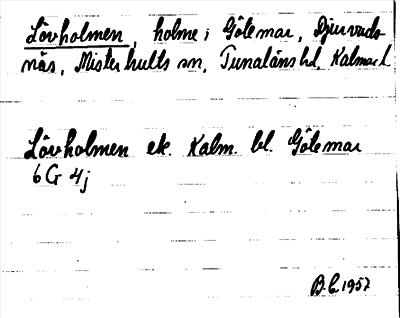 Lövholmen, holme i Götemar, Djurvads-
näs, Misterhults sn, Tunaläns hd, Kalmar l
Lövholmen ek. Kalm. bl. Götemar
6 G 4j
B.E. 1957